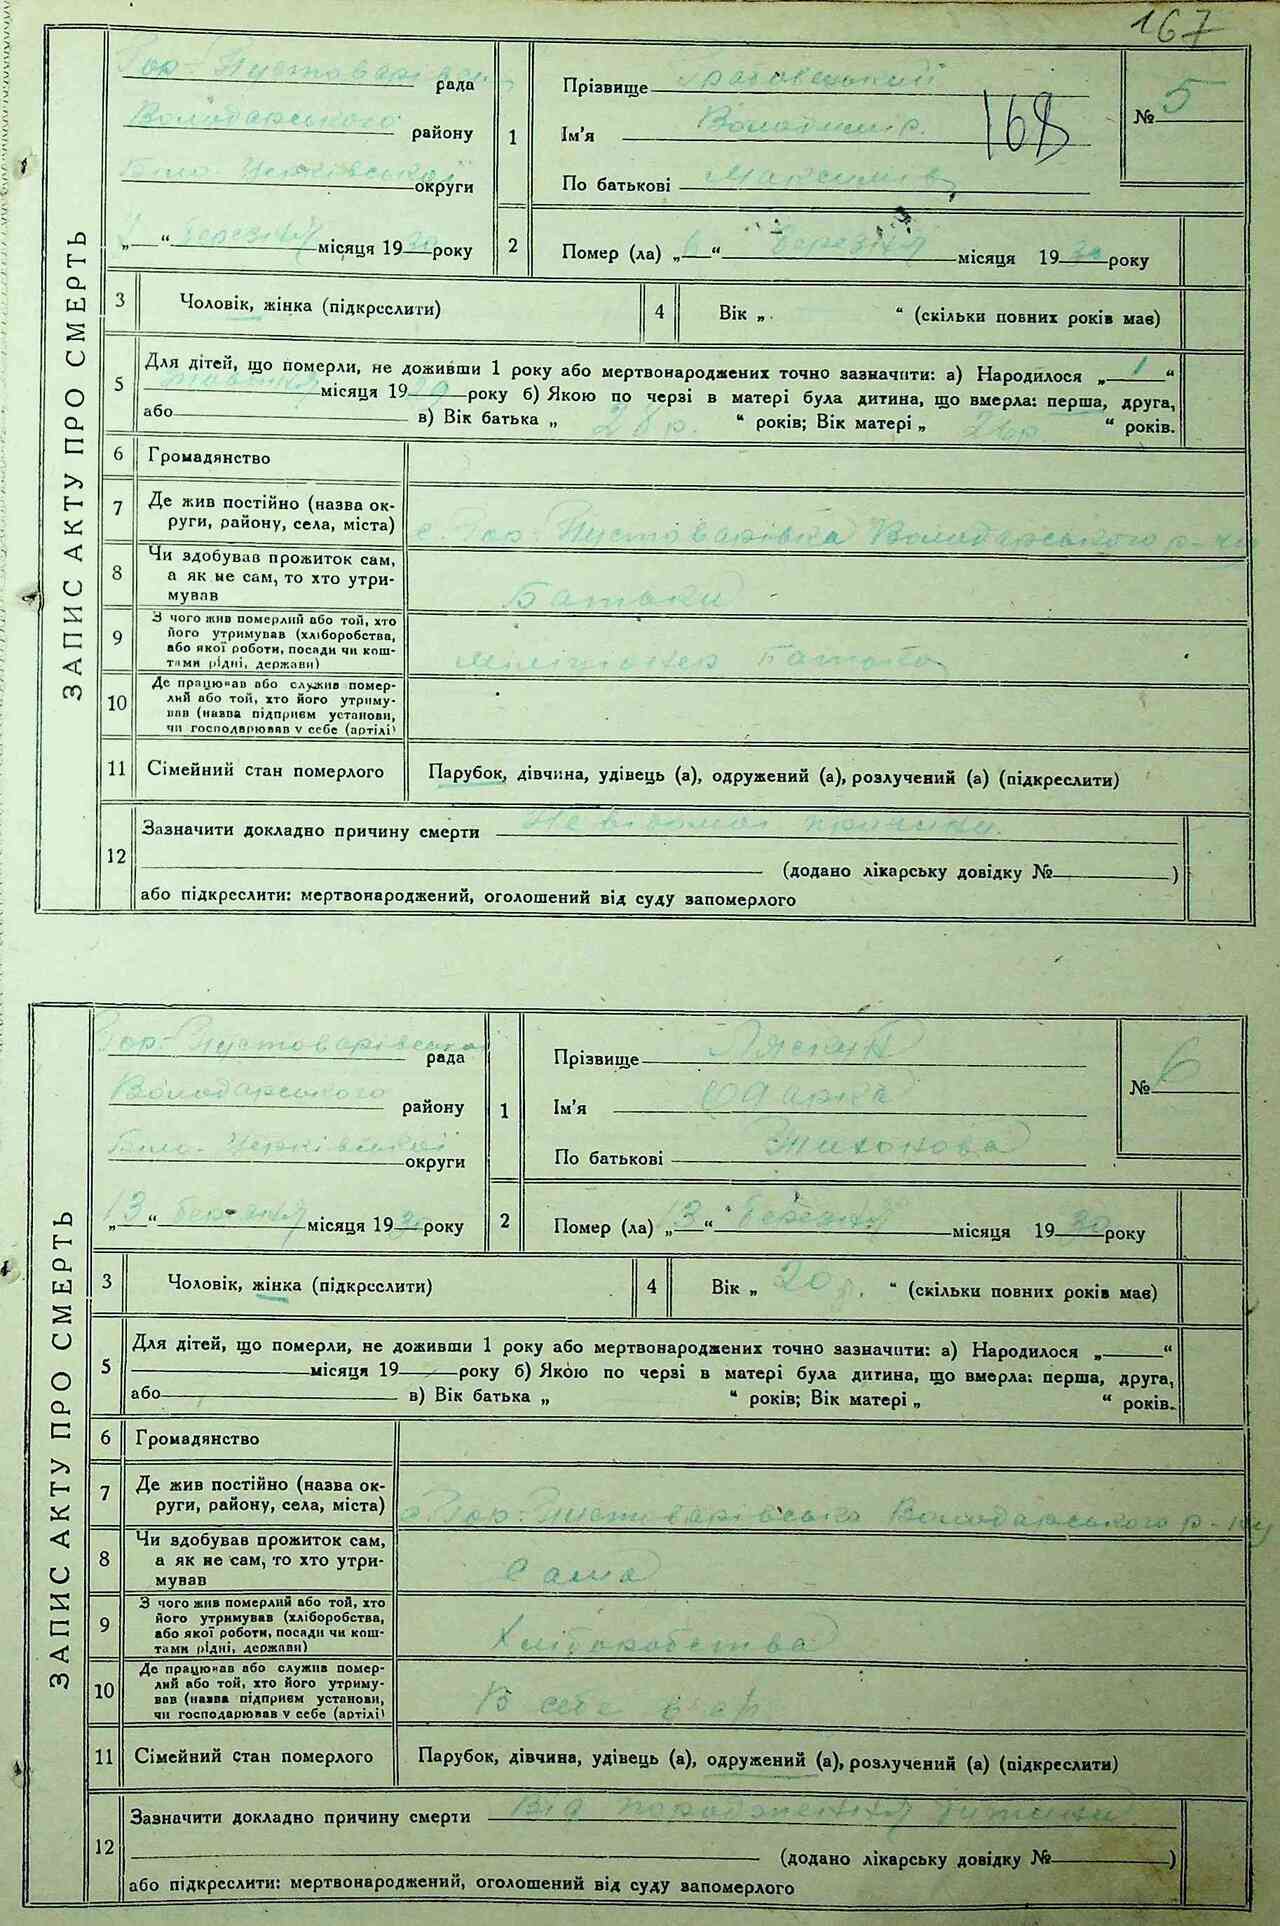 167
168
ЗАПИС АКТУ ПРО СМЕРТЬ
Гор-Пустоварівська рада
Володарського району
Біло-Церківської округи
„ “ березня місяця 1930 року
1
Прізвище Грабовецький
Ім'я Володимир
По батькові Максимів
№ 5
2 Помер (ла) „6“ березня місяця 1930 року
3 Чоловік, жінка (підкреслити)
4 Вік „ “ (скільки повних років має)
5 Для дітей, що померли, не доживши 1 року або мертвонароджених точно зазначити: а) Народилося „1“
жовтня місяця 1929 року б) Якою по черзі в матері була дитина, що вмерла: перша, друга,
або в) Вік батька „ 28 р. “ років; Вік матері „ 26 р. “ років.
6 Громадянство
7 Де жив постійно (назва округи, району, села, міста) с. Гор-Пустоварівка Володарського р-ну
8 Чи здобував прожиток сам, а як не сам, то хто утримував Батьки
9 З чого жив померлий або той, хто його утримував (хліборобства, або якої роботи, посади чи коштами рідні, держави) міліціонер батько
10 Де працював або служив померлий або той, хто його утримував (назва підприєм установи, чи господарював у себе (артілі)
11 Сімейний стан померлого Парубок, дівчина, удівець (а), одружений (а), розлучений (а) (підкреслити)
12 Зазначити докладно причину смерти Невідомої причини
(додано лікарську довідку № )
або підкреслити: мертвонароджений, оголошений від суду запомерлого
ЗАПИС АКТУ ПРО СМЕРТЬ
Гор-Пустоварівська рада
Володарського району
Біло-Церківської округи
„13“ березня місяця 1930 року
1
Прізвище
Ім'я Одарка
По батькові Тихонова
№ 6
2 Помер (ла) „13“ березня місяця 1930 року
3 Чоловік, жінка (підкреслити)
4 Вік „ 20 р. “ (скільки повних років має)
5 Для дітей, що померли, не доживши 1 року або мертвонароджених точно зазначити: а) Народилося „ “
місяця 19 року б) Якою по черзі в матері була дитина, що вмерла: перша, друга,
або в) Вік батька „ “ років; Вік матері „ “ років.
6 Громадянство
7 Де жив постійно (назва округи, району, села, міста) с. Гор-Пустоварівська Володарського р-ну
8 Чи здобував прожиток сам, а як не сам, то хто утримував Сама
9 З чого жив померлий або той, хто його утримував (хліборобства, або якої роботи, посади чи коштами рідні, держави) Хліборобства
10 Де працював або служив померлий або той, хто його утримував (назва підприєм установи, чи господарював у себе (артілі) В себе
11 Сімейний стан померлого Парубок, дівчина, удівець (а), одружений (а), розлучений (а) (підкреслити)
12 Зазначити докладно причину смерти Від народження дитини
(додано лікарську довідку № )
або підкреслити: мертвонароджений, оголошений від суду запомерлого